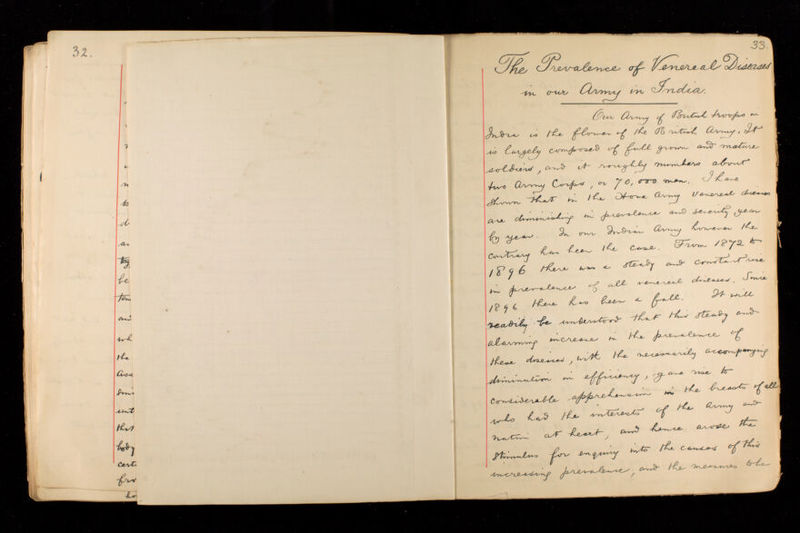 32.
33.
The Prevalence of Venereal Diseases
in our Army in India.
Our Army of British troops in
India is the flower of the British Army. It
is largely composed of full grown and mature
soldiers, and it roughly numbers about
two Army Corps, or 70,000 men. I have
shown that in the Home Army venereal diseases
are diminishing in prevalence and severity year
by year. In our Indian Army however the
contrary has been the case. From 1872 to
1896 there was a steady and constant rise
in prevalence of all venereal diseases. Since
1896 there has been a fall. It will
readily be understood that this steady and
alarming increase in the prevalence of
these diseases, with the necessarily accompanying
diminution in efficiency, gave rise to
considerable apprehension in the breasts of all
who had the interests of the Army and
nation at heart, and hence arose the
stimulus for enquiry into the causes of this
increasing prevalence, and the measures to be